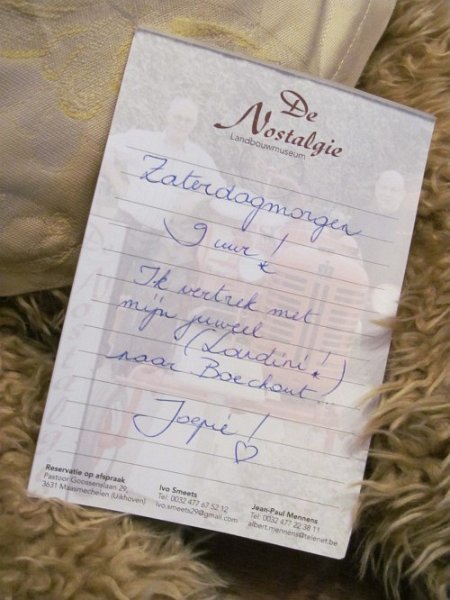 De
Nostalgie
Landbouwmuseum
Zaterdagmorgen
9 uur!
Ik vertrek met
mijn juweel
(Landini!)
naar Boechout
Joepie! ♡
Reservatie op afspraak
Pastoor Goossenslaan 29,
3631 Maasmechelen (Uikhoven)
Ivo Smeets
Tel. 0032 477 67 52 12
ivo.smeets29@gmail.com
Jean-Paul Mennens
Tel: 0032 477 22 38 11
albert.mennens@telenet.be